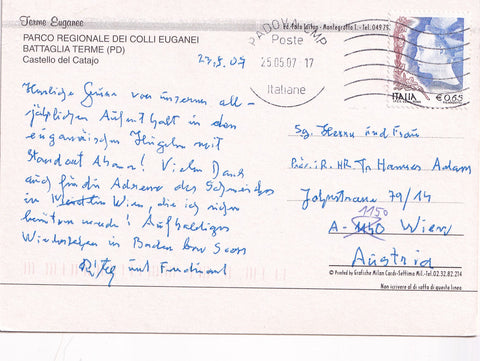 Terme Euganee
PARCO REGIONALE DEI COLLI EUGANEI
BATTAGLIA TERME (PD)
Castello del Catajo
23.5.07
PADOVA CMP
Poste
25.05.07 - 17
Italiane
ITALIA
€ 0,65
Herzliche Grüße von unserem all-
jährlichen Aufenthalt in den
euganäischen Hügeln mit
Standort Abano! Vielen Dank
auch für die Adresse des
in Wien, die ich sicher
benützen werde! Auf baldiges
Wiedersehen in Baden bzw
und Ferdinand
Sg. Herrn und Frau
Präs. i. R. HR Dr Hannes Adam
79/14
1150
A-1140 Wien
Austria
© Printed by Grafiche Milan Cards-Settimo Mil.-Tel.02.32.82.214
Non scrivere al di sotto di questa linea